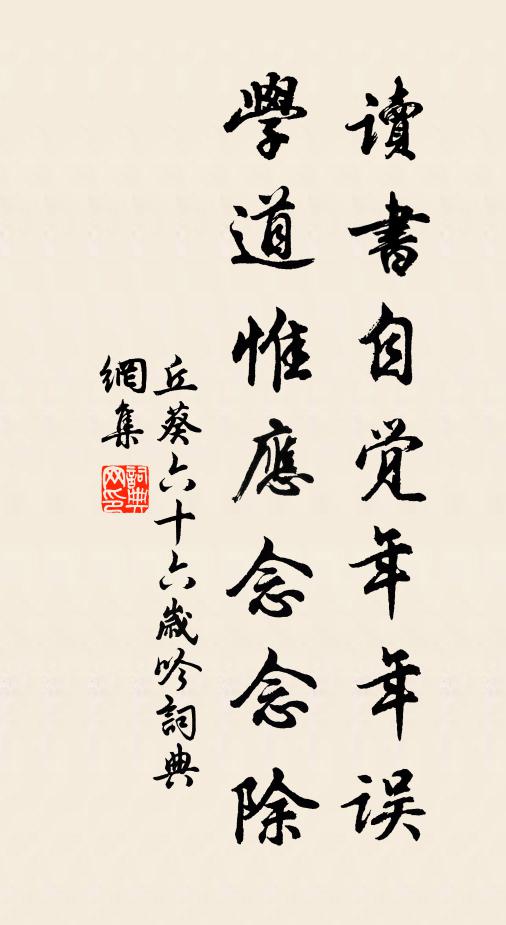 讀書自覚年年误
學道惟應念念除
丘葵六十六歲吟詞典
網集
詞典
网印